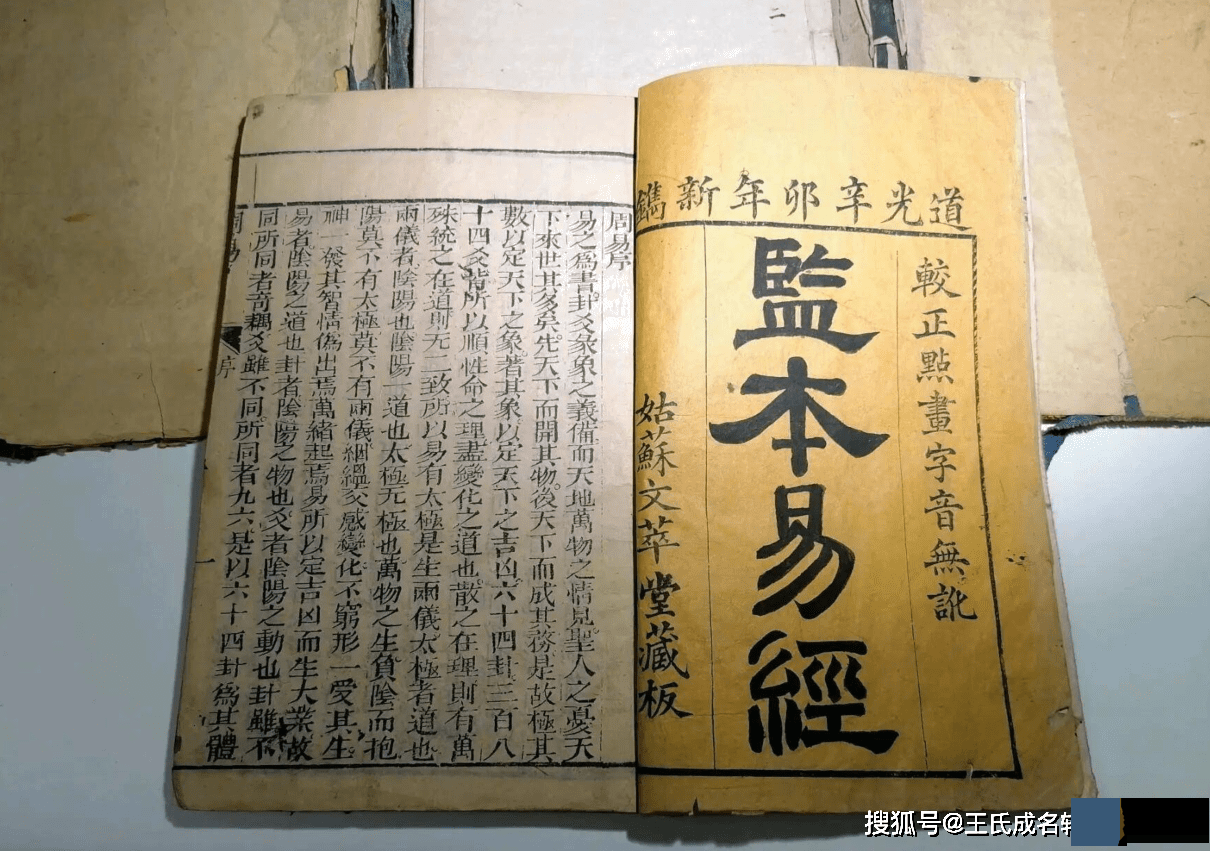 道光辛卯年新鐫
較正點畫字音無訛
監本易經
姑蘇文萃堂藏板
周易序
易之為書卦爻彖象之義備而天地萬物之情見聖人之憂天
下來世其多矣先天下而開其物後天下而成其務是故極其
數以定天下之象著其象以定天下之吉凶六十四卦三百八
十四爻皆所以順性命之理盡變化之道也散之在理則有萬
殊統之在道則无二致所以易有太極是生兩儀太極者道也
兩儀者陰陽也陰陽一道也太極无極也萬物之生負陰而抱
陽莫不有太極莫不有兩儀絪縕交感變化不窮形一受其生
神一發其智情偽出焉萬緒起焉易所以定吉凶而生大業故
易者陰陽之道也卦者陰陽之物也爻者陰陽之動也卦雖不
同所同者奇耦爻雖不同所同者九六是以六十四卦為其體
周易
序
一
二
搜狐号@王氏成名